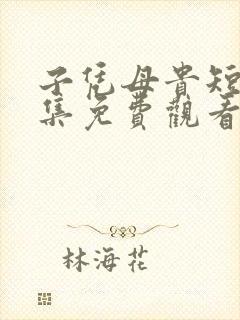 子凭母貴短
集免費觀看
林海花